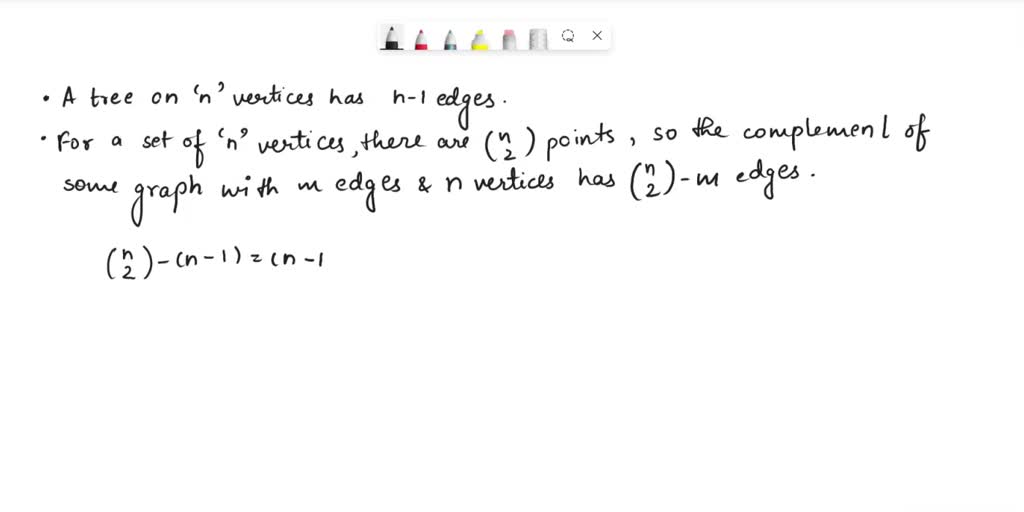 • A tree on 'n' vertices has n-1 edges.
• For a set of 'n' vertices, there are (n 2) points, so the complement of
some graph with m edges & n vertices has (n 2)-m edges.
(n 2)-(n-1)=(n-1